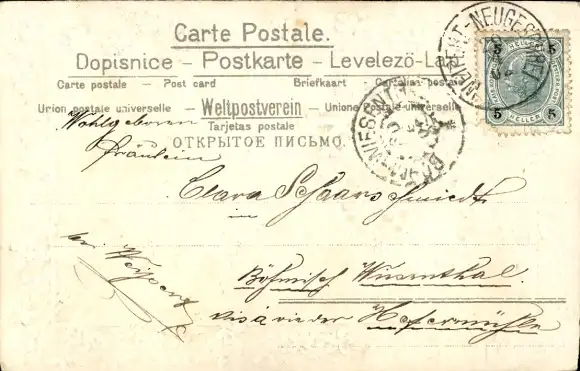 Carte Postale.
Dopisnice - Postkarte - Levelező-La
Carte postale - Post card Briefkaart - Cartolina postale
Union postale universelle - Weltpostverein - Unione Postale universelle
Tarjetas postale
ОТКРЫТОЕ ПИСЬМО.
5 5
HELLER
5 5
HELLER
Wohlgeboren
Fräulein
Clara Schaarschmidt
in
bei Weipert
Böhmisch Wiesenthal.
vis à vis der Hafermühle